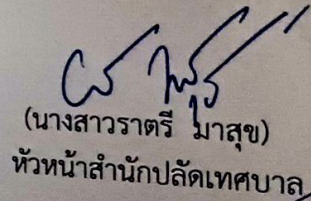 (นางสาวราตรี มาสุข)
หัวหน้าสำนักปลัดเทศบาล